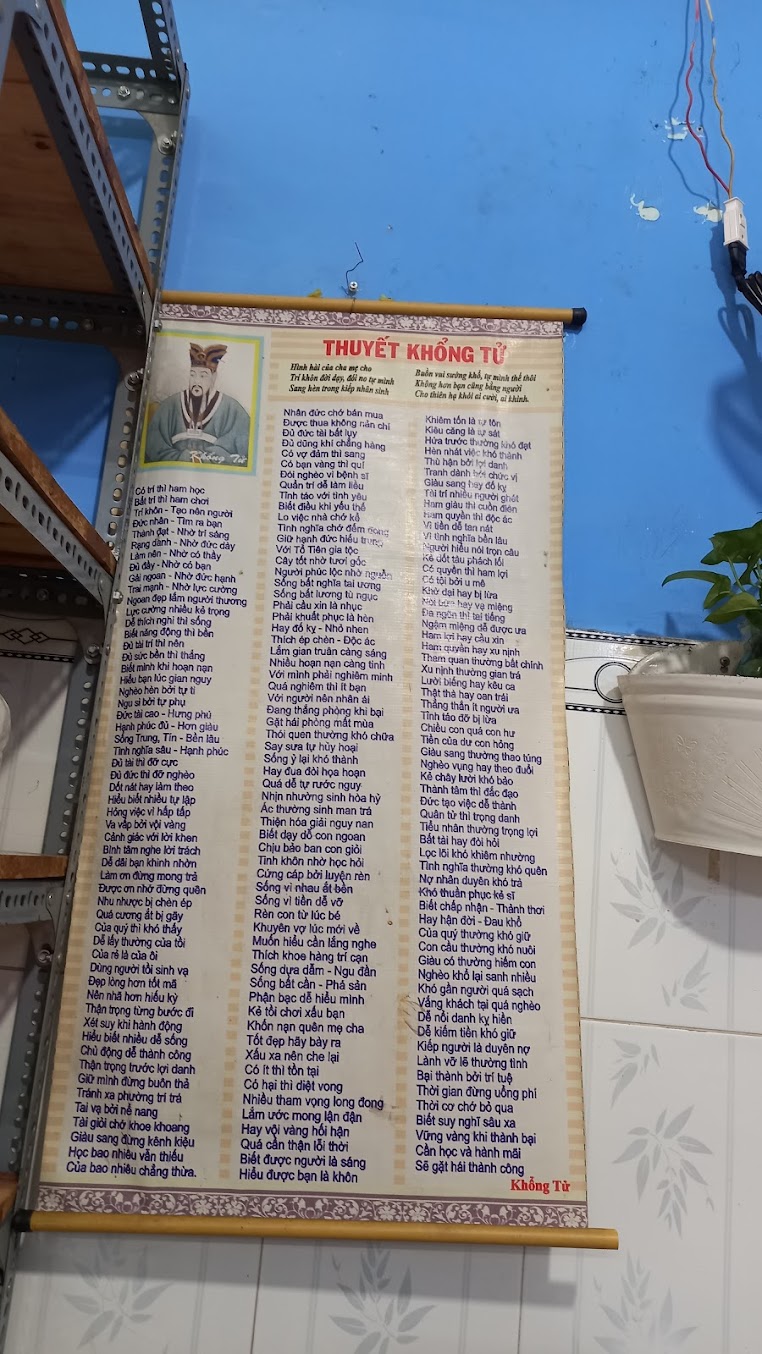 THUYẾT KHỔNG TỬ
Hình hài của cha mẹ cho
Trí khôn đời dạy, đói no tự mình
Sang hèn trong kiếp nhân sinh
Buồn vui sướng khổ, tự mình thế thôi
Không hơn bạn cũng bằng người
Cho thiên hạ khỏi ai cười, ai khinh.
Khổng Tử
Có trí thì ham học
Bất trí thì ham chơi
Trí khôn - Tạo nên người
Đức nhân - Tìm ra bạn
Thành đạt - Nhờ trí sáng
Rạng dành - Nhờ đức dày
Làm nên - Nhờ có thầy
Đủ đầy - Nhờ có bạn
Gái ngoan - Nhờ đức hạnh
Trai mạnh - Nhờ lực cường
Ngoan đẹp lắm người thương
Lực cường nhiều kẻ trọng
Dễ thích nghi thì sống
Biết năng động thì bền
Đủ tài trí thì nên
Đủ sức bền thì thắng
Biết mình khi hoạn nạn
Hiểu bạn lúc gian nguy
Nghèo hèn bởi tự ti
Ngu si bởi tự phụ
Đức tài cao - Hưng phú
Hạnh phúc đủ - Hơn giàu
Sống Trung, Tín - Bền lâu
Tình nghĩa sâu - Hạnh phúc
Đủ tài thì đỡ cực
Đủ đức thì đỡ nghèo
Dốt nát hay làm theo
Hiểu biết nhiều tự lập
Hỏng việc vì hấp tấp
Va vấp bởi vội vàng
Cảnh giác với lời khen
Bình tâm nghe lời trách
Dễ dãi bạn khinh nhờn
Làm ơn đừng mong trả
Được ơn nhớ đừng quên
Nhu nhược bị chèn ép
Quá cương ắt bị gãy
Của quý thì khó thấy
Dễ lấy thường của tồi
Của rẻ là của ôi
Dùng người tồi sinh vạ
Đẹp lòng hơn tốt mã
Nên nhã hơn hiếu kỳ
Thận trọng từng bước đi
Xét suy khi hành động
Hiểu biết nhiều dễ sống
Chủ động dễ thành công
Thận trọng trước lợi danh
Giữ mình đừng buông thả
Tránh xa phường trí trá
Tai vạ bởi nể nang
Tài giỏi chớ khoe khoang
Giàu sang đừng kênh kiệu
Học bao nhiêu vẫn thiếu
Của bao nhiêu chẳng thừa.
Nhân đức chớ bán mua
Được thua không nản chí
Đủ đức tài bất lụy
Đủ dũng khí chẳng hàng
Có vợ đảm thì sang
Có bạn vàng thì quí
Đói nghèo vì bệnh sĩ
Quẫn trí dễ làm liều
Tỉnh táo với tình yêu
Biết điều khi yếu thế
Lo việc nhà chớ kể
Tình nghĩa chớ đếm đong
Giữ hạnh đức hiếu trung
Với Tổ Tiên gia tộc
Cây tốt nhờ tươi gốc
Người phúc lộc nhờ nguồn
Sống bất nghĩa tai ương
Sống bất lương tù ngục
Phải cầu xin là nhục
Phải khuất phục là hèn
Hay đố kỵ - Nhỏ nhen
Thích ép chèn - Độc ác
Lắm gian truân càng sáng
Nhiều hoạn nạn càng tinh
Với mình phải nghiêm minh
Quá nghiêm thì ít bạn
Với người nên nhân ái
Đang thắng phòng khi bại
Gặt hái phòng mất mùa
Thói quen thường khó chữa
Say sưa tự hủy hoại
Sống ỷ lại khó thành
Hay đua đòi họa hoạn
Quá dễ tự rước nguy
Nhịn nhường sinh hòa hỷ
Ác thường sinh man trá
Thiện hóa giải nguy nan
Biết dạy dỗ con ngoan
Chịu bảo ban con giỏi
Tinh khôn nhờ học hỏi
Cứng cáp bởi luyện rèn
Sống vì nhau ắt bền
Sống vì tiền dễ vỡ
Rèn con từ lúc bé
Khuyên vợ lúc mới về
Muốn hiểu cần lắng nghe
Thích khoe hàng trí cạn
Sống dựa dẫm - Ngu đần
Sống bất cần - Phá sản
Phận bạc dễ hiểu mình
Kẻ tồi chơi xấu bạn
Khốn nạn quên mẹ cha
Tốt đẹp hãy bày ra
Xấu xa nên che lại
Có ít thì tồn tại
Có hại thì diệt vong
Nhiều tham vọng long đong
Lắm ước mong lận đận
Hay vội vàng hối hận
Quá cẩn thận lỗi thời
Biết được người là sáng
Hiểu được bạn là khôn
Khiêm tốn là tự tôn
Kiêu căng là tự sát
Hứa trước thường khó đạt
Hèn nhát việc khó thành
Thù hận bởi lợi danh
Tranh dành bởi chức vị
Giàu sang hay đố kỵ
Tài trí nhiều người ghét
Ham giàu thì cuồn điên
Ham quyền thì độc ác
Vì tiền dễ tan nát
Vì tình nghĩa bền lâu
Người hiểu nói trọn câu
Kẻ dốt tâu phách lối
Có quyền thì ham lợi
Có tội bởi u mê
Khờ dại hay bị lừa
Nói bừa hay vạ miệng
Đa ngôn thì tai tiếng
Ngậm miệng dễ được ưa
Ham lợi hay cầu xin
Ham quyền hay xu nịnh
Tham quan thường bất chính
Xu nịnh thường gian trá
Lười biếng hay kêu ca
Thật thà hay oan trái
Thẳng thắn ít người ưa
Tỉnh táo đỡ bị lừa
Chiều con quá con hư
Tiền của dư con hỏng
Giàu sang thường thao túng
Nghèo vụng hay theo đuôi
Kẻ chây lười khó bảo
Thành tâm thì đắc đạo
Đức tạo việc dễ thành
Quân tử thì trọng danh
Tiểu nhân thường trọng lợi
Bất tài hay đòi hỏi
Lọc lõi khó khiêm nhường
Tình nghĩa thường khó quên
Nợ nhân duyên khó trả
Khó thuần phục kẻ sĩ
Biết chấp nhận - Thảnh thơi
Hay hận đời - Đau khổ
Của quý thường khó giữ
Con cầu thường khó nuôi
Giàu có thường hiếm con
Nghèo khổ lại sanh nhiều
Khó gần người quá sạch
Vắng khách tại quá nghèo
Dễ nổi danh kỵ hiền
Dễ kiếm tiền khó giữ
Kiếp người là duyên nợ
Lành vỡ lẽ thường tình
Bại thành bởi trí tuệ
Thời gian đừng uổng phí
Thời cơ chớ bỏ qua
Biết suy nghĩ sâu xa
Vững vàng khi thành bại
Cần học và hành mãi
Sẽ gặt hái thành công
Khổng Tử